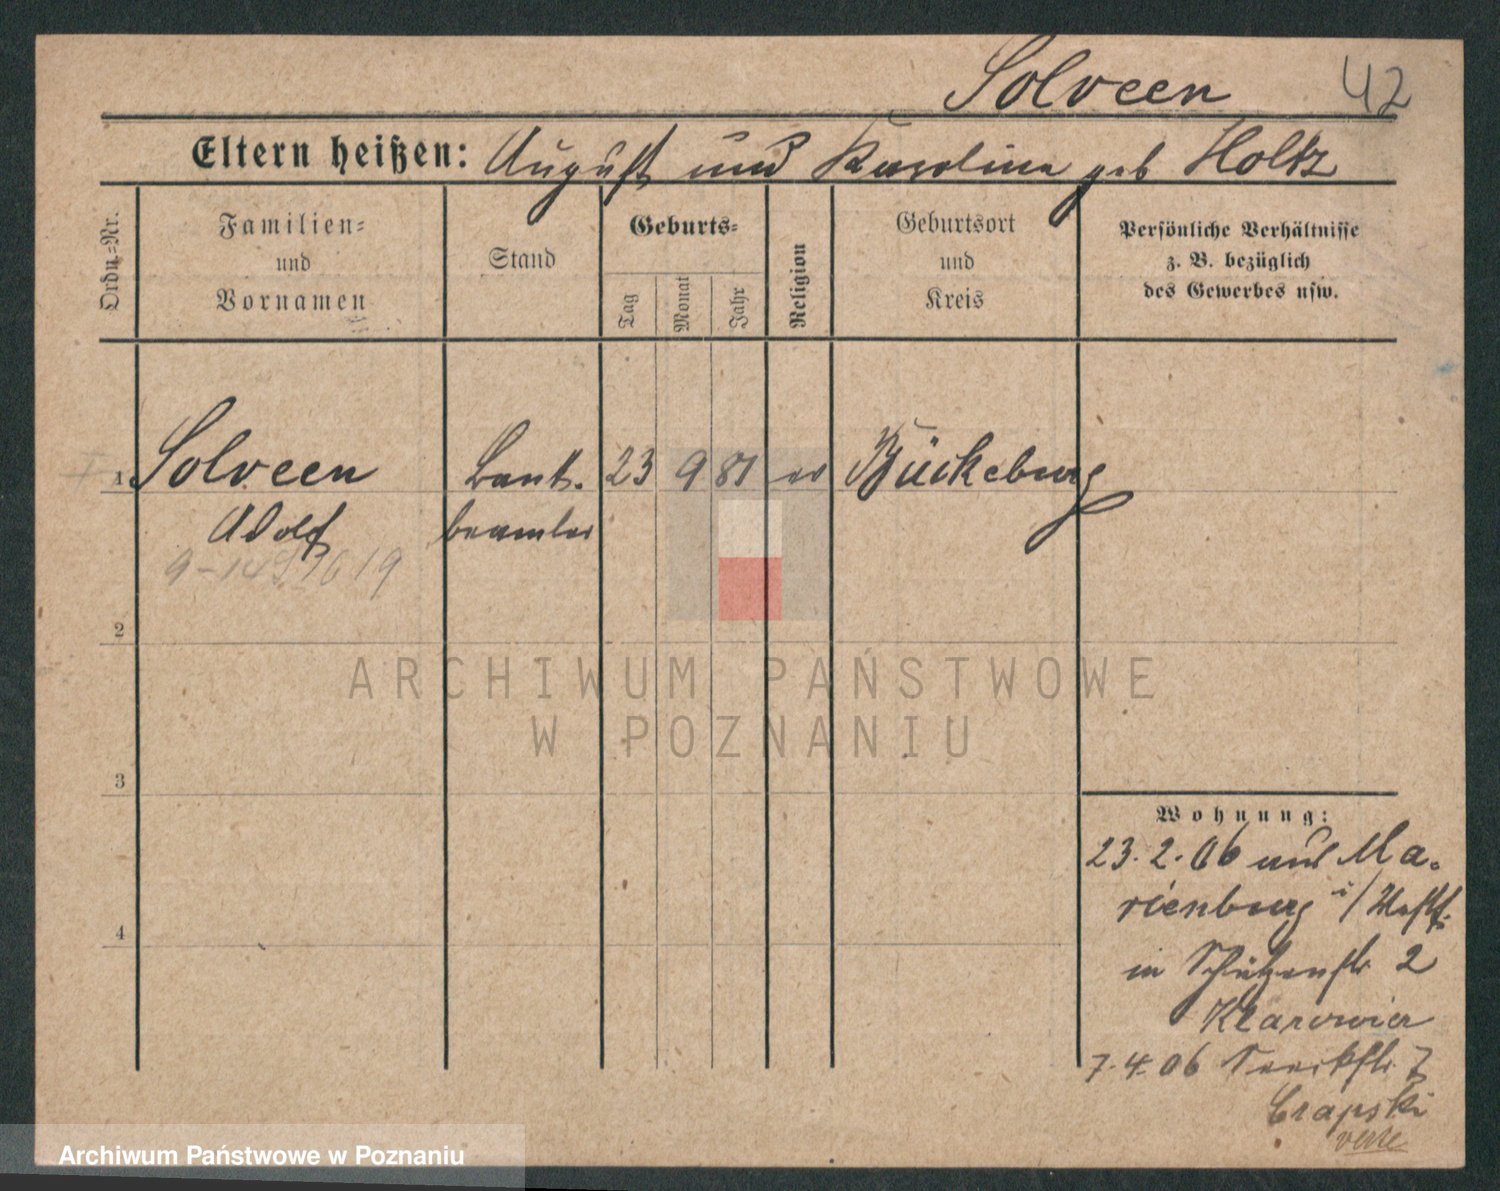 Solveen 42
Eltern heißen: August und Karoline geb Holtz
Ordn.-Nr.
Familien-
und
Vornamen
Stand
Geburts-
Tag
Monat
Jahr
Religion
Geburtsort
und
Kreis
Persönliche Verhältnisse
z. B. bezüglich
des Gewerbes usw.
1 Solveen Bank- 23 9 81 ev Bückeburg
Adolf beamter
2
ARCHIWUM PAŃSTWOWE
W POZNANIU
3
Wohnung:
23.2.06 aus Ma-
rienburg i/Westf.
4
in Schützenstr 2
7.4.06 7
Czapski
verte
Archiwum Państwowe w Poznaniu